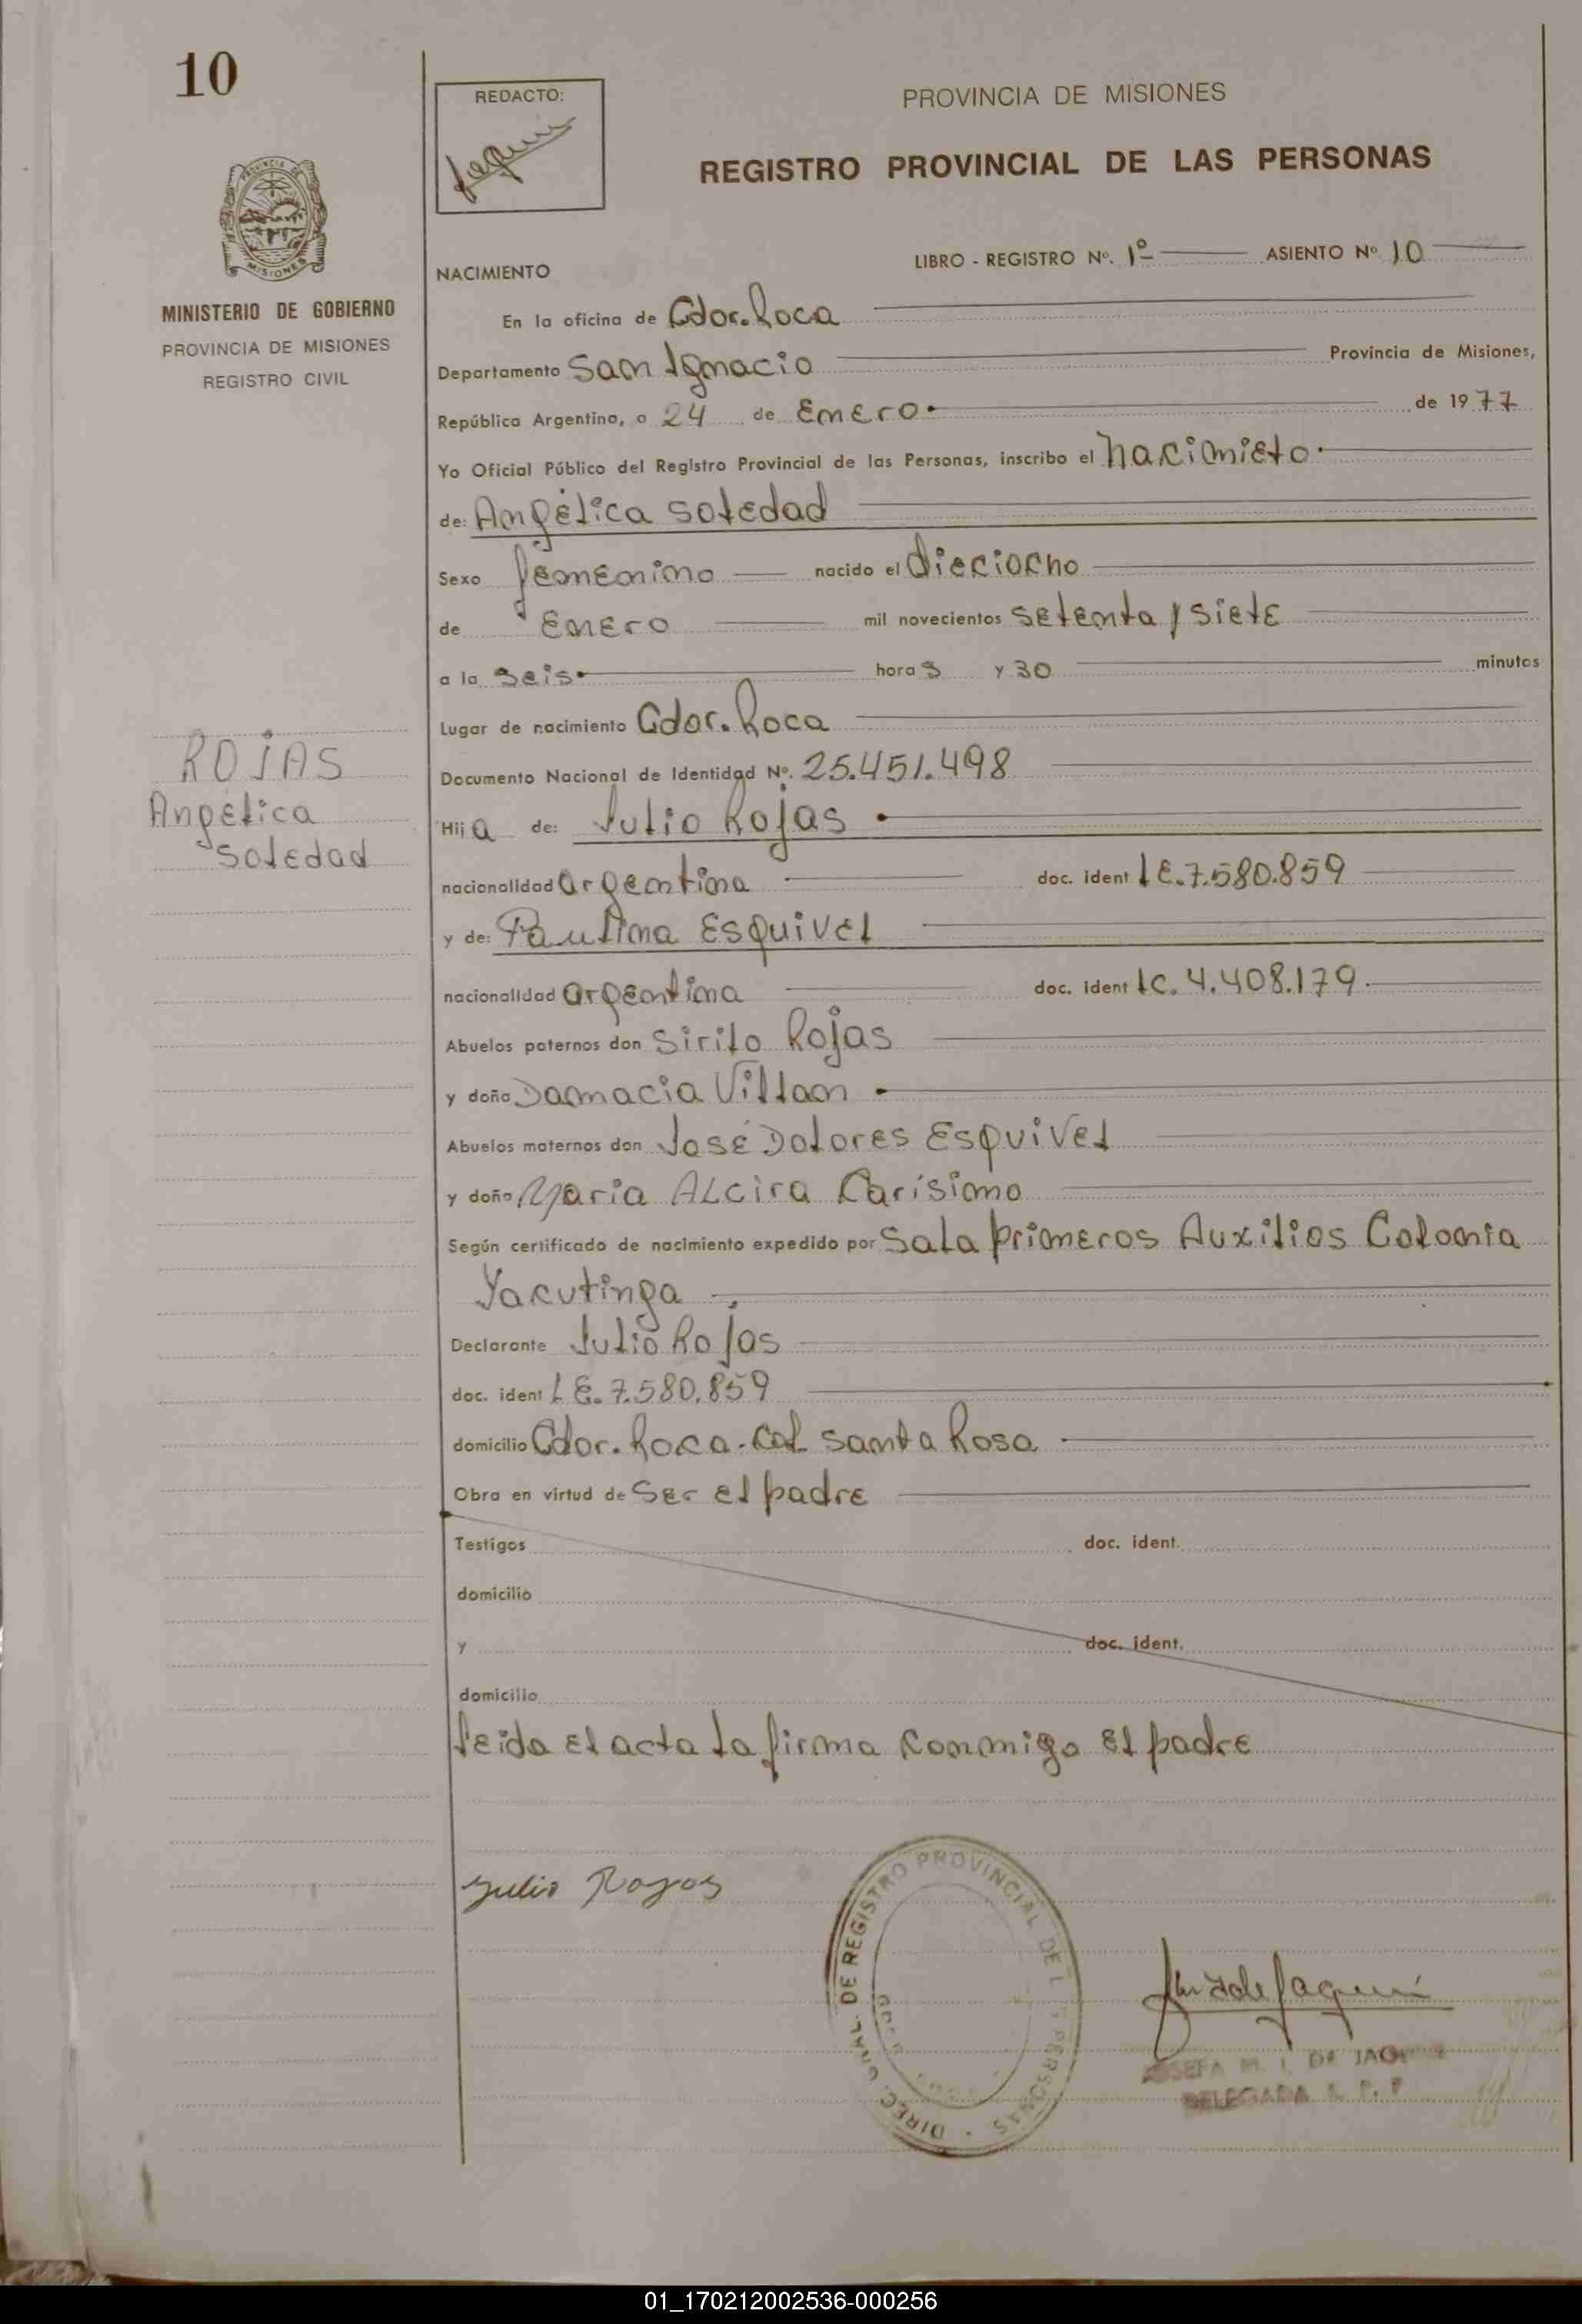 10
REDACTO:
PROVINCIA DE MISIONES
REGISTRO PROVINCIAL DE LAS PERSONAS
MINISTERIO DE GOBIERNO
PROVINCIA DE MISIONES
REGISTRO CIVIL
NACIMIENTO
LIBRO - REGISTRO Nº. 1º ASIENTO Nº 10
En la oficina de Gdor. Roca
Departamento San Ignacio Provincia de Misiones,
República Argentina, a 24 de Enero de 1977
Yo Oficial Público del Registro Provincial de las Personas, inscribo el nacimieto
de: Angélica Soledad
Sexo femenino nacido el dieciocho
de Enero mil novecientos setenta y siete
a la seis horas y 30 minutos
Lugar de nacimiento Gdor. Roca
Documento Nacional de Identidad Nº. 25.451.498
ROJAS
Angélica
Soledad
Hija de: Julio Rojas
nacionalidad argentina doc. ident LE.7.580.859
y de: Paulina Esquivel
nacionalidad argentina doc. ident LC. 4.408.179
Abuelos paternos don Sirilo Rojas
y doña Damacia Villan
Abuelos maternos don José Dolores Esquivel
y doña Maria Alcira Carísimo
Según certificado de nacimiento expedido por Sala primeros Auxilios Colonia
Yacutinga
Declarante Julio Rojas
doc. ident LE. 7.580.859
domicilio Gdor. Roca - Col Santa Rosa
Obra en virtud de ser el padre
Testigos doc. ident.
domicilio
y doc. ident.
domicilio
leida el acta la firma conmigo el padre
Julio Rojas
DIREC. GRAL. DE REGISTRO PROVINCIAL DE LAS PERSONAS
JOSEFA M. I. DE
DELEGADA
01_170212002536-000256